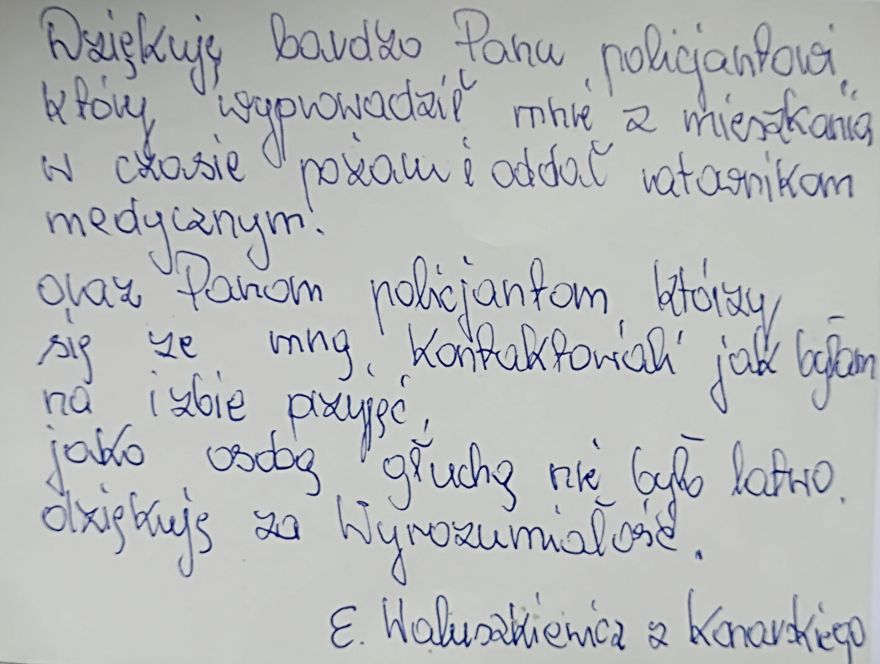 Dziękuję bardzo Panu policjantowi,
który wyprowadził mnie z mieszkania
w czasie pożaru i oddał ratownikom
medycznym.
oraz Panom policjantom, którzy
się ze mną, kontaktowali jak byłam
na izbie przyjęć,
jako osobą głuchą nie było łatwo.
dziękuję za Wyrozumiałość.
E. Waluszkiewicz z Konarskiego